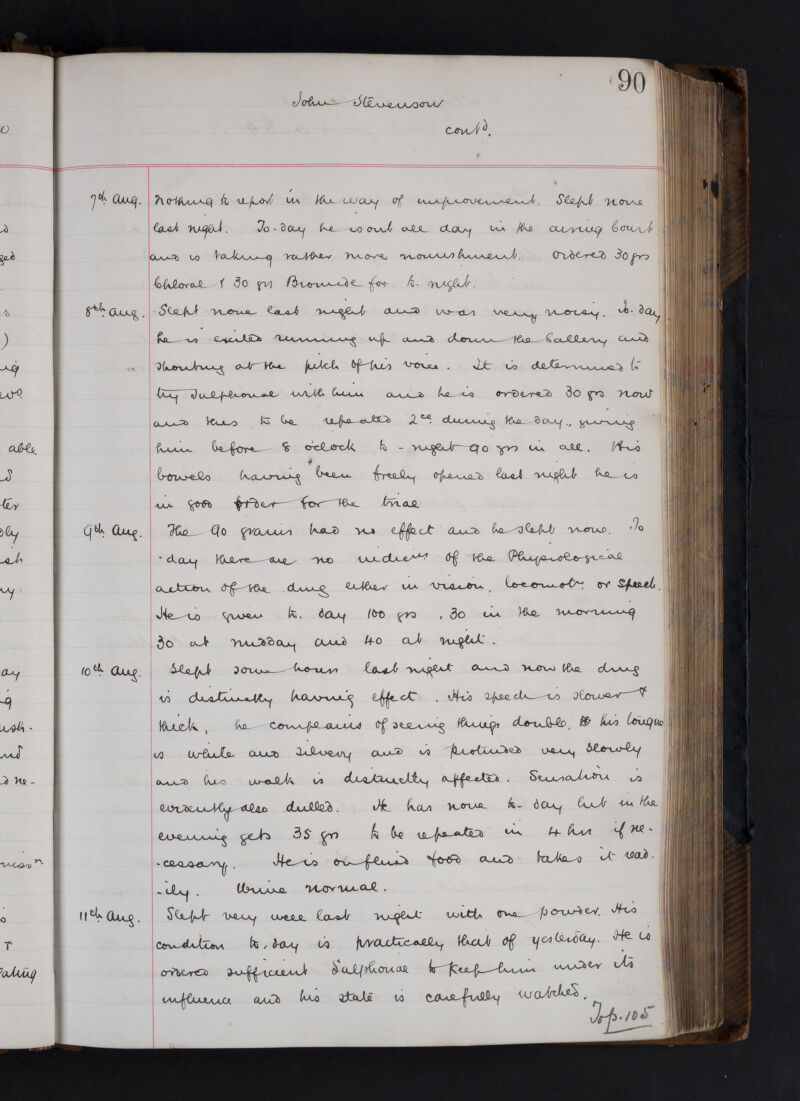 90
John Stevenson
contd.
7th Aug. Nothing to report in the way of improvement. Slept none
last night. To-day he is out all day in the airing Court
and is taking rather more nourishment. Ordered 30 grs
Chloral & 30 grs Bromide for to. night.
8th Aug. Slept none last night and was very noisy. To. day
he is excited running up and down the Gallery and
shouting at the pitch of his voice. It is determined to
try Sulphonal with him and he is ordered 30 grs now
and this to be repeated 2ce during the day, giving
him before 8 o'clock to-night 90 grs in all. His
bowels having been freely opened last night he is
in good order for the trial
9th Aug. The 90 grains had no effect and he slept none. To
-day there are no indicns of the Physiological
action of the drug either in vision, locomotn. or speech.
He is given to. day 100 grs, 30 in the morning
30 at midday and 40 at night.
10th Aug. Slept some hours last night and now the drug
is distinctly having effect. His speech is slower &
thick, he complains of seeing things double, his tongue
is white and silvery and is protruded very slowly
and his walk is distinctly affected. Sensation is
evidently also dulled. He has none to-day but in the
evening gets 35 grs to be repeated in 4 hrs if ne-
-cessary. He is on fluid food and takes it read-
-ily. Urine normal.
11th Aug. Slept very well last night with one powder. His
condition to. day is practically that of yesterday. He is
ordered sufficient Sulphonal to keep him under its
influence and his state is carefully watched.
To p. 105